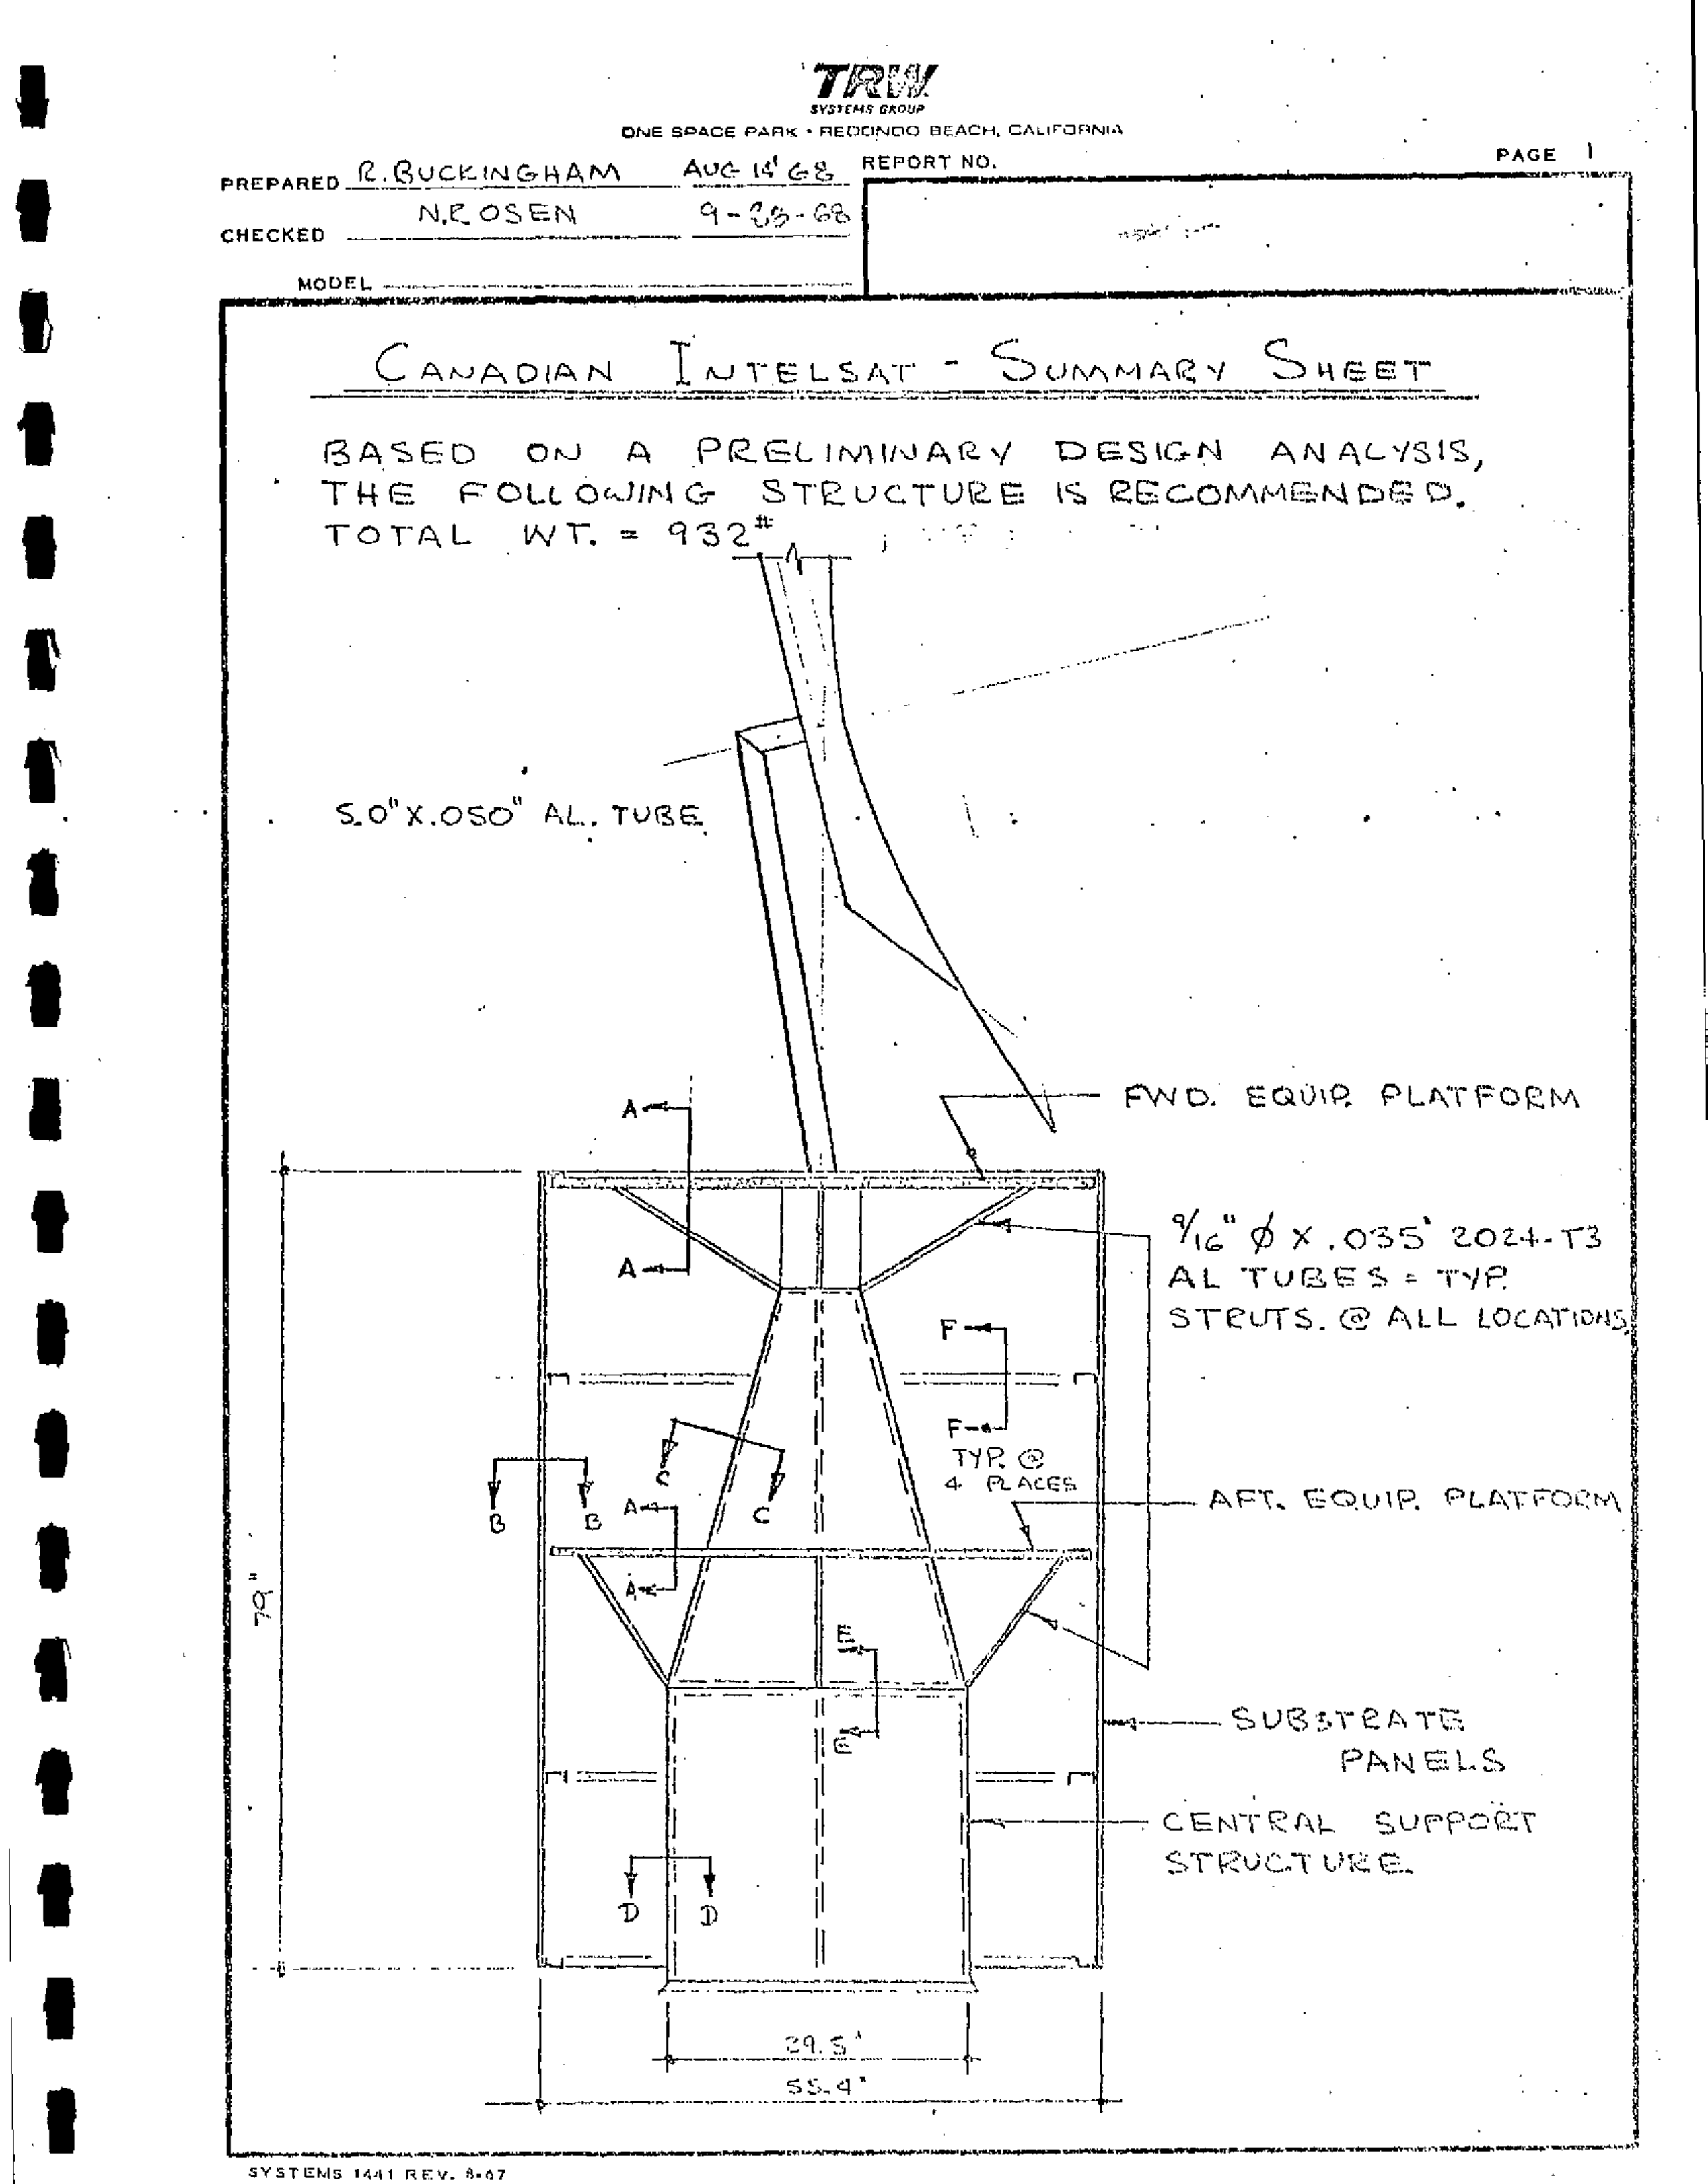 TRW
SYSTEMS GROUP
ONE SPACE PARK • REDONDO BEACH, CALIFORNIA
PREPARED R. BUCKINGHAM AUG 14' 68 REPORT NO. PAGE 1
CHECKED N. ROSEN
MODEL
CANADIAN INTELSAT - SUMMARY SHEET
BASED ON A PRELIMINARY DESIGN ANALYSIS,
THE FOLLOWING STRUCTURE IS RECOMMENDED.
TOTAL WT. = 932#
5.0" X .050" AL. TUBE
A
FWD. EQUIP. PLATFORM
A
9/16" Ø X .035" 2024-T3
AL TUBES = TYP.
STRUTS. @ ALL LOCATIONS
F
F
TYP. @
4 PLACES
C
C
B
B
A
AFT. EQUIP. PLATFORM
A
79"
E
E
SUBSTRATE
PANELS
CENTRAL SUPPORT
STRUCTURE
D
D
29.5"
55.4"
SYSTEMS 1441 REV. 8-67